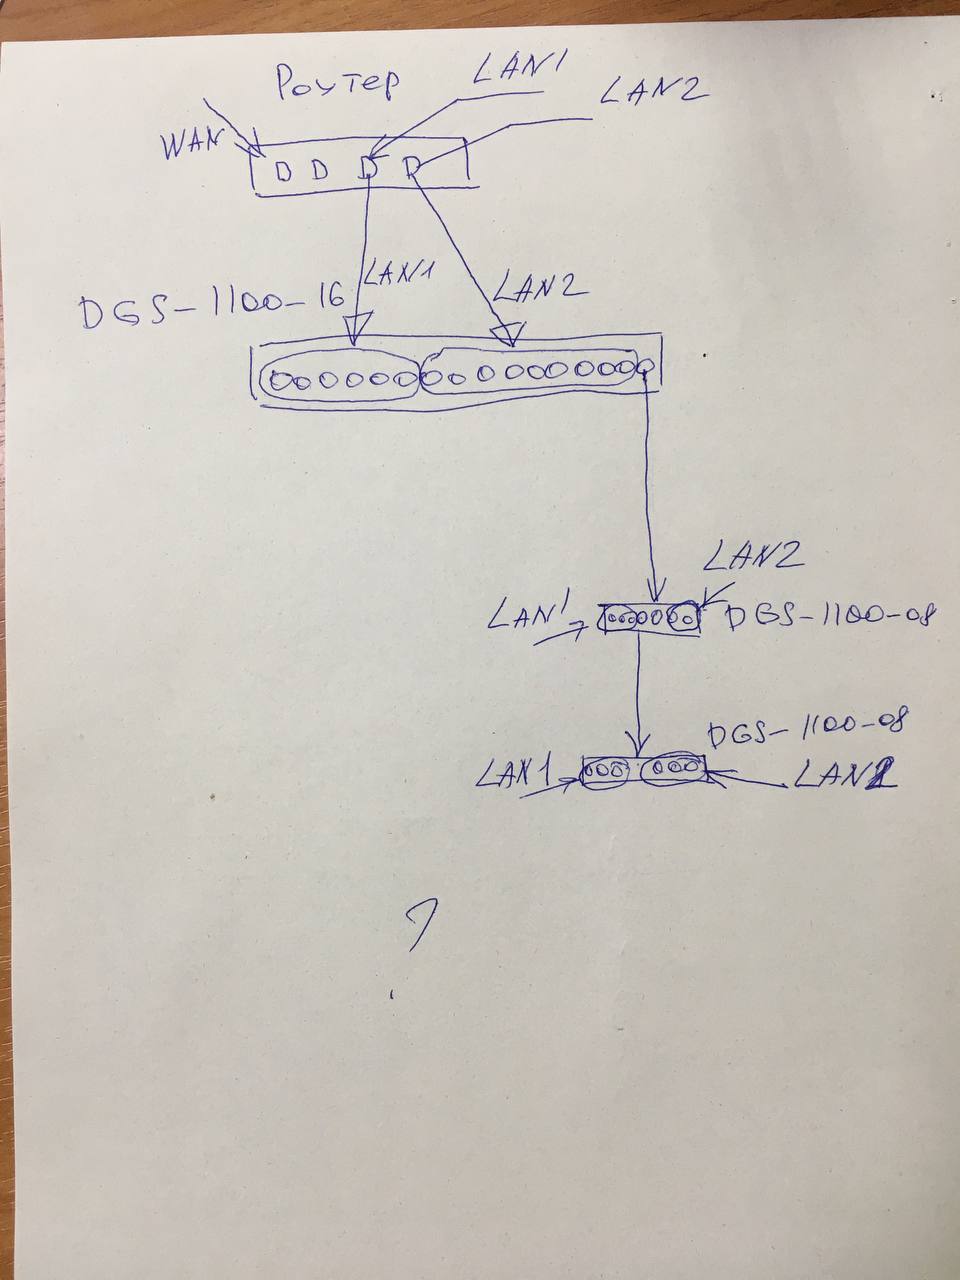 Роутер
LAN1
LAN2
WAN
LAN1
LAN2
DGS-1100-16
LAN2
LAN1
DGS-1100-08
DGS-1100-08
LAN1
LAN2
?